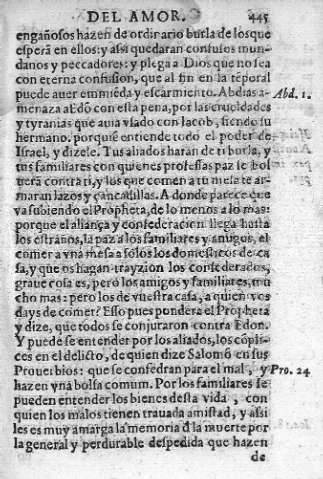 DEL AMOR. 445
engañosos hazen de ordinario burla de los que
esperã en ellos: y assi quedaran confusos mun-
danos y peccadores: y plega a Dios que no sea
con eterna confusion, que al fin en la tẽporal
puede auer emmiẽda y escarmiento. Abdias a- Abd. 1.
menaza al Edõ con esta pena, por las crueldades
y tyranias que auia vsado con Iacob, siendo su
hermano. porque entiende todo el poder de
Israel, y dizele. Tus aliados haran de ti burla, y
tus familiares con quienes professas paz se bol
uerà contra ti, y los que comen a tu mesa te ar-
maran lazos y çancadillas. A donde parece que
va subiendo el Propheta, de lo menos a lo mas:
porque el aliança y confederacion llega hasta
los estraños, la paz a los familiares y amigos, el
comer a vna mesa a solos los domesticos de ca
sa, y que os hagan trayzion los confederados,
graue cosa es, pero los amigos y familiares, mu
cho mas: pero los de vuestra casa, a quien vos
days de comer? Esso pues pondera el Propheta
y dize, que todos se conjuraron contra Edon.
Y puede se entender por los aliados, los cõpli-
ces en el delicto, de quien dize Salomõ en sus
Prouerbios: que se confedran para el mal, y Pro. 24
hazen vna bolsa comum. Por los familiares se
pueden entender los bienes desta vida, con
quien los malos tienen trauada amistad, y assi
les es muy amarga la memoria d̃ la muerte por
la general y perdurable despedida que hazen
de